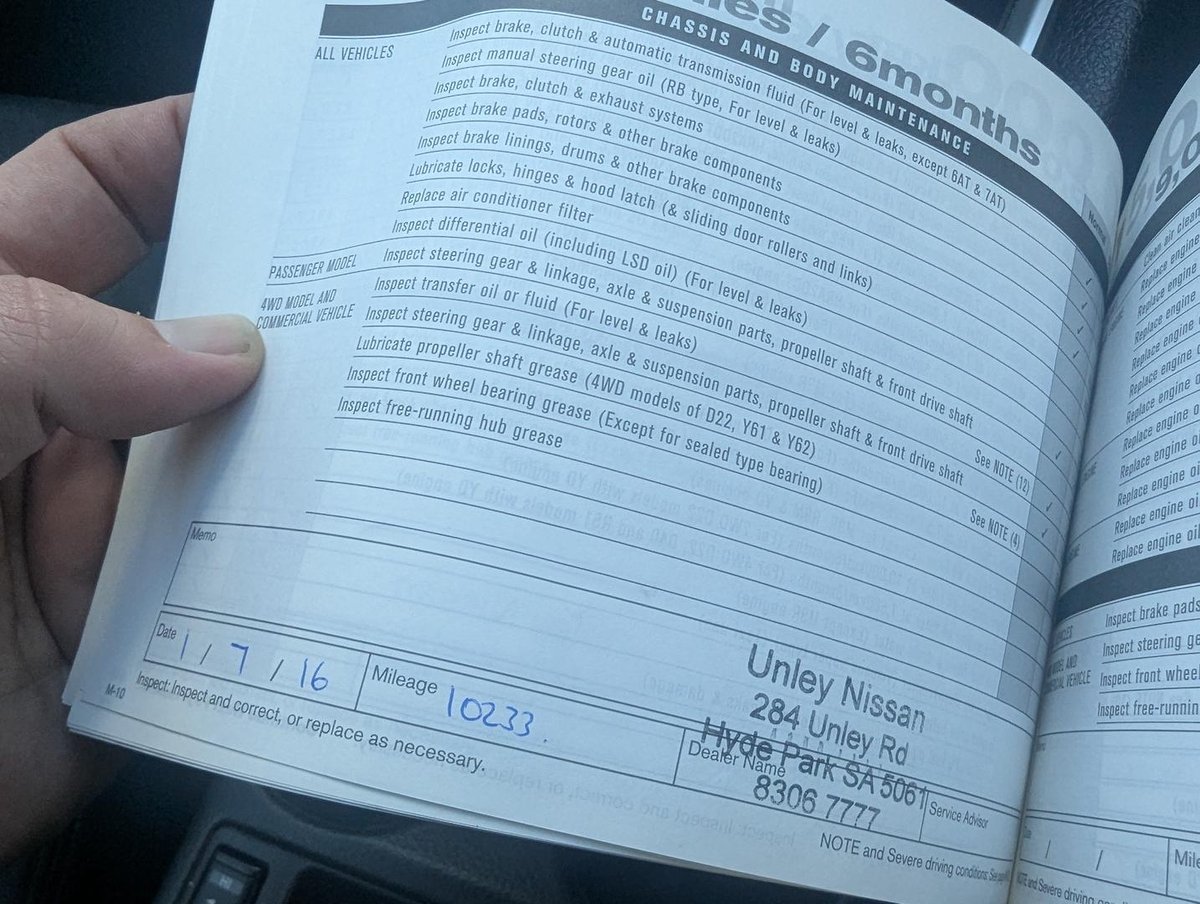 / 6months
CHASSIS AND BODY MAINTENANCE
ALL VEHICLES
Inspect brake, clutch & automatic transmission fluid (For level & leaks, except 6AT & 7AT)
Inspect manual steering gear oil (RB type, For level & leaks)
Inspect brake, clutch & exhaust systems
Inspect brake pads, rotors & other brake components
Inspect brake linings, drums & other brake components
Lubricate locks, hinges & hood latch (& sliding door rollers and links)
Replace air conditioner filter
Inspect differential oil (including LSD oil) (For level & leaks)
PASSENGER MODEL
Inspect steering gear & linkage, axle & suspension parts, propeller shaft & front drive shaft
4WD MODEL AND
COMMERCIAL VEHICLE
Inspect transfer oil or fluid (For level & leaks)
Inspect steering gear & linkage, axle & suspension parts, propeller shaft & front drive shaft
Lubricate propeller shaft grease (4WD models of D22, Y61 & Y62) See NOTE (12)
Inspect front wheel bearing grease (Except for sealed type bearing)
Inspect free-running hub grease See NOTE (4)
Memo
Date 1 / 7 / 16
Mileage 10233.
Unley Nissan
284 Unley Rd
Hyde Park SA 5061
8306 7777
Dealer Name
Service Advisor
M-10
Inspect: Inspect and correct, or replace as necessary.
NOTE and Severe driving conditions: See
Replace engine
Replace engine
Replace engine
Replace engine
Replace engine
Replace engine
Replace engine
Replace engine oil
Replace engine oil
Replace engine oil
Inspect brake pads
Inspect steering
Inspect front wheel
Inspect
/ /